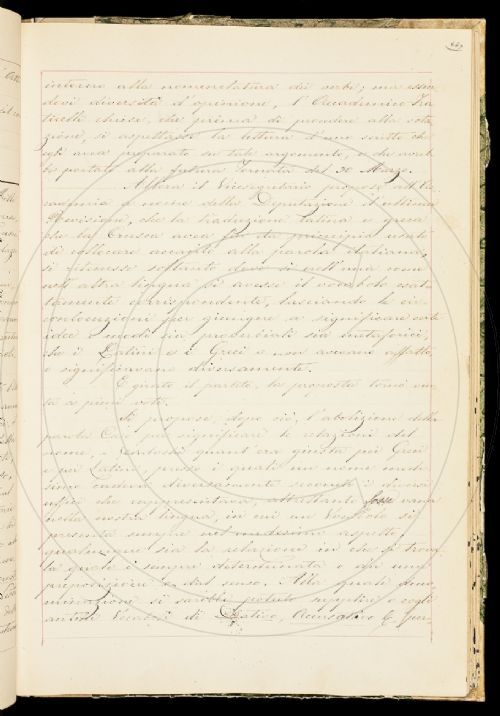 intorno alla nomenclatura dei verbi; ma essen-
dovi diversità d'opinione, l'Accademico Fra
ticelli chiese, che prima di procedere alla vota
zione, si aspettasse la lettura d'uno scritto che
egli avea preparato su tale argomento, e che avreb
be portato alla futura Tornata del 30 Marzo.
Allora il Vicesegretario propose all'Ac
cademia a nome della Deputazione di ultima
Revisione, che la traduzione latina e greca
che la Crusca avea fin da principio usato
di collocare accanto alla parola italiana,
si ritenesse soltanto dove sì nell'una come
nell'altra lingua si avesse il vocabolo esat-
tamente corrispondente, lasciando le cir-
conlocuzioni per giungere a significare certe
idee e modi sia proverbiali sia metaforici,
che i Latini e i Greci o non avevano affatto,
o significavano diversamente.
E girato il partito, la proposta tornò vin
ta a pieni voti.
Si propose, dopo ciò, l'abolizione della
parola Caso per significare le relazioni del
nome, quant'era giusta pei Greci
e pei Latini, presso i quali un nome mede
simo cadeva diversamente secondo i diversi
uffici che rappresentava, altrettanto fosse vana
nella nostra lingua, in cui un Vocabolo si
presenta sempre nel medesimo aspetto,
qualunque sia la relazione in che si trova,
la quale è sempre determinata o da una
preposizione o dal senso. Alla quali deno
minazioni si sarebbe potuto supplire, e cogli
antichi Vocaboli di Dativo, Accusativo &c per-